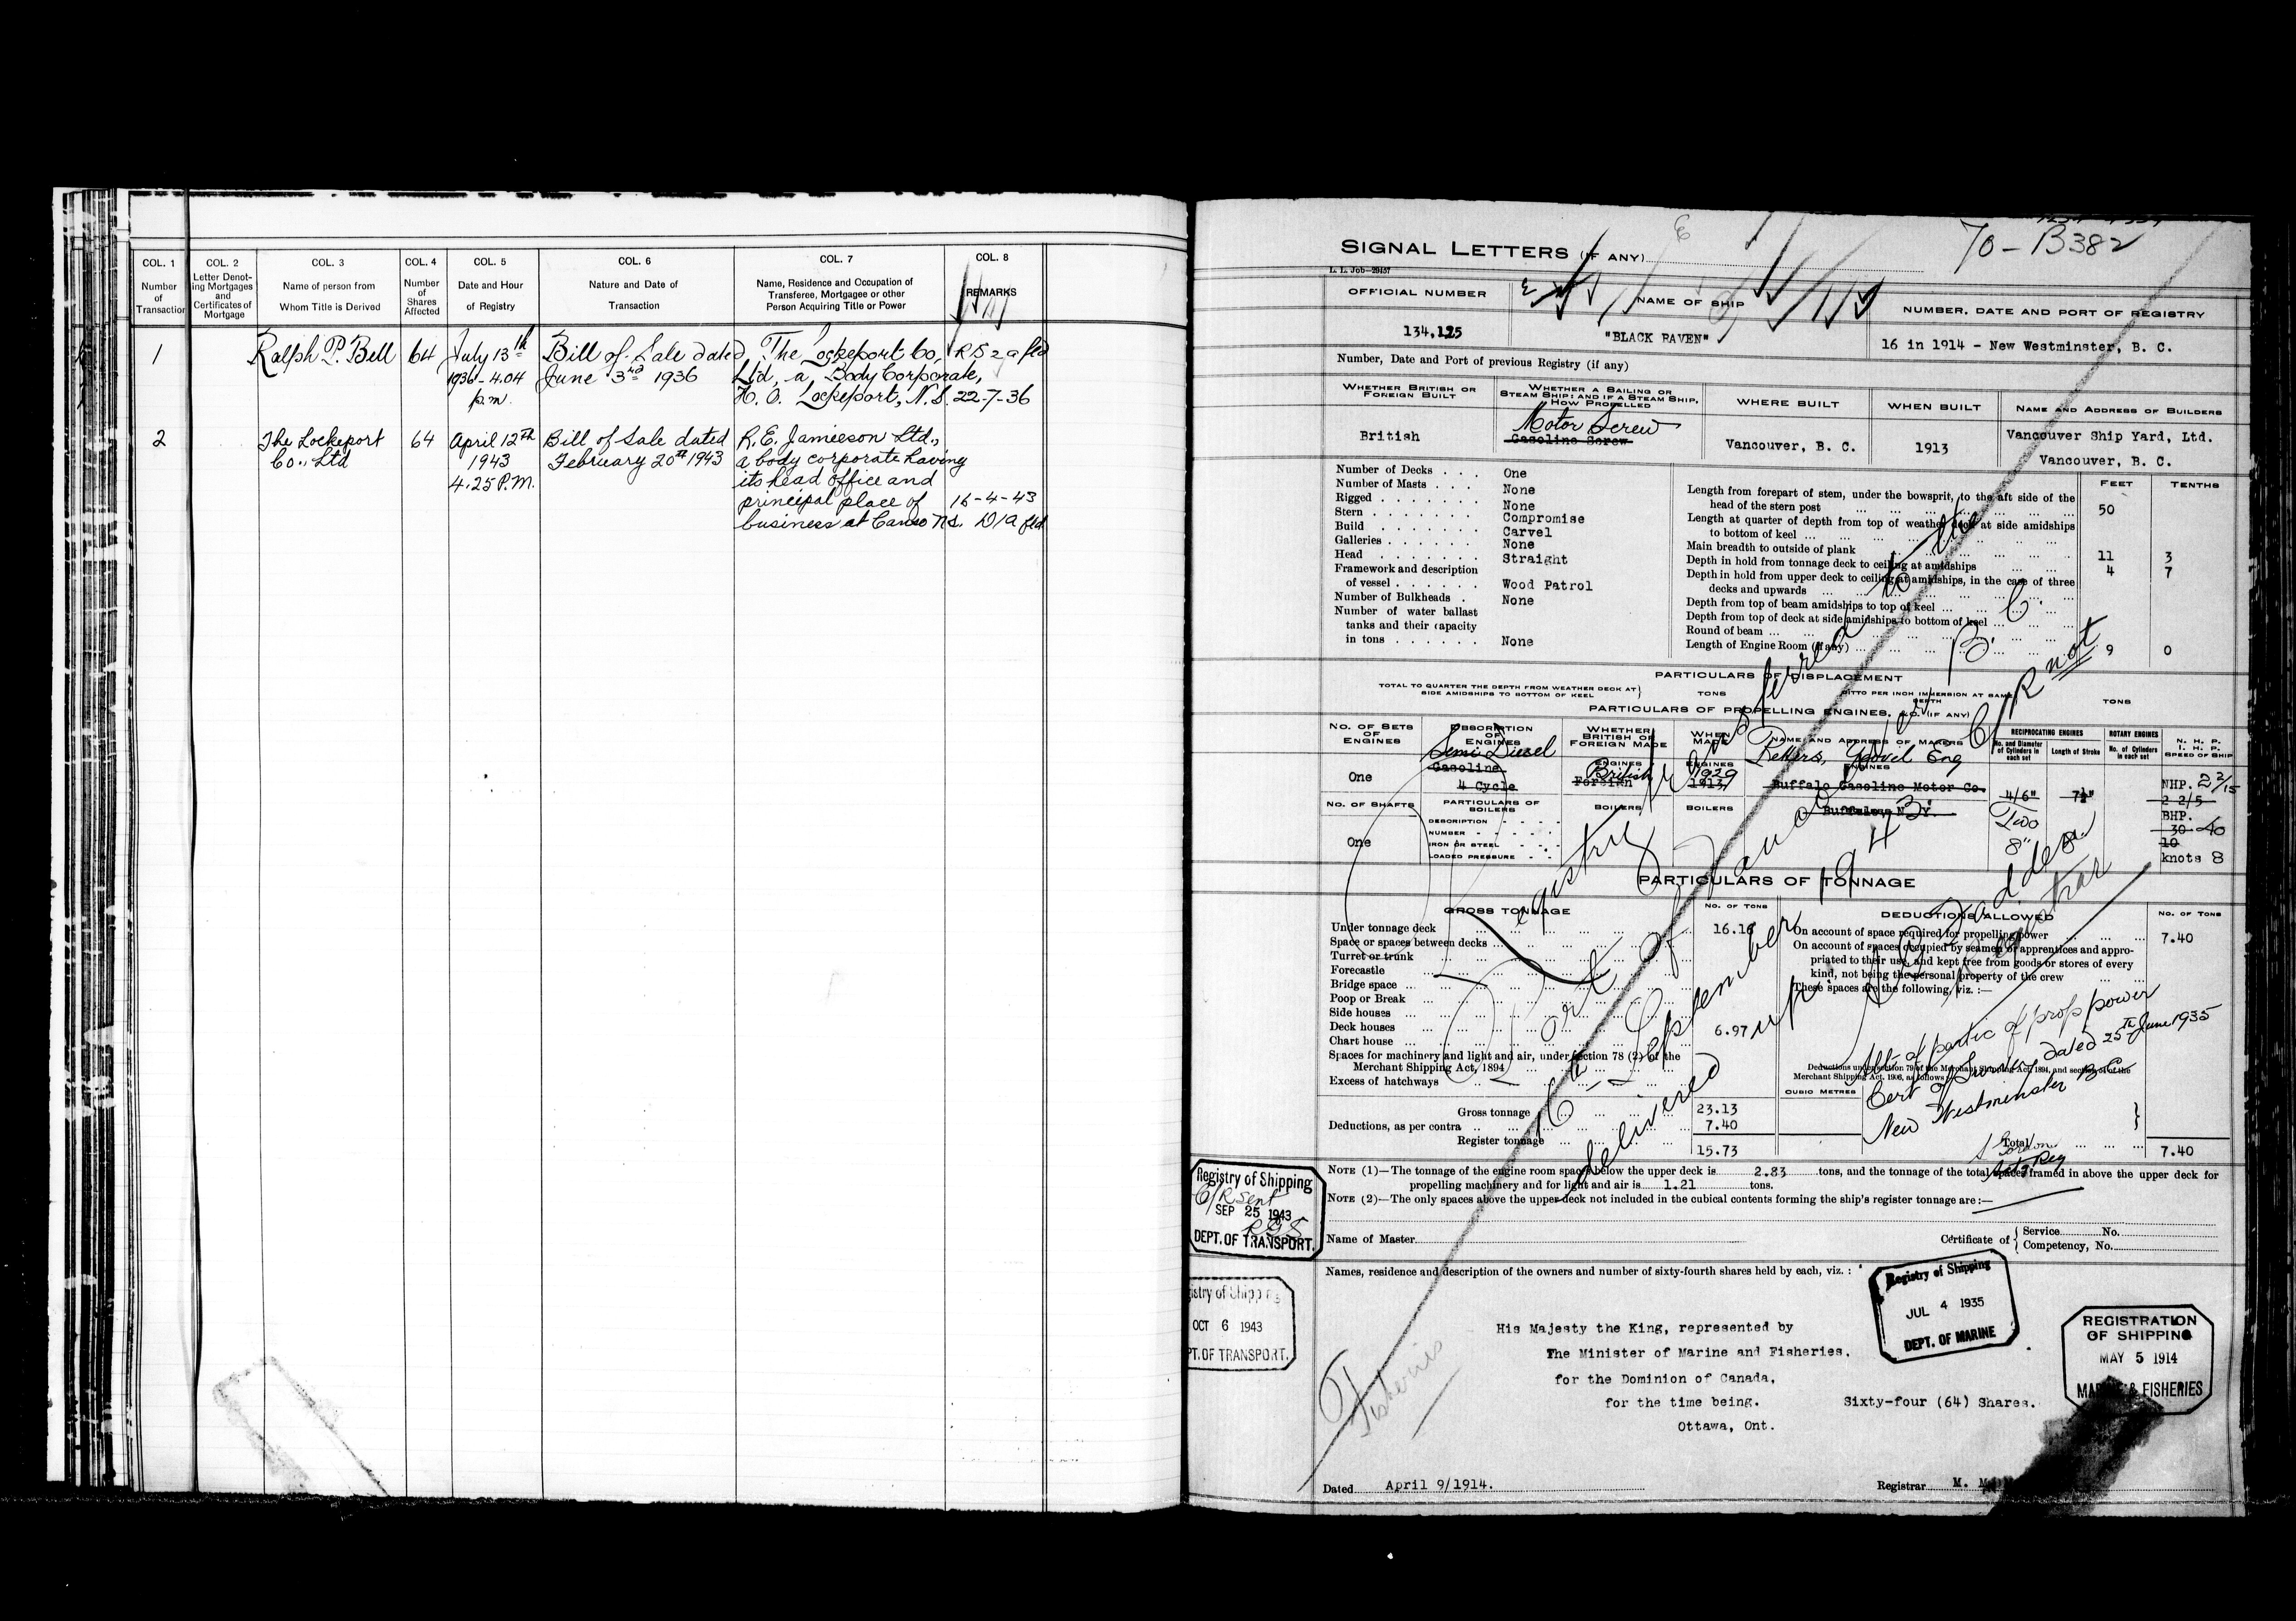 COL. 1 COL. 2 COL. 3 COL. 4 COL. 5 COL. 6 COL. 7 COL. 8
Number of Transaction
Letter Denoting Mortgages and Certificates of Mortgage
Name of person from Whom Title is Derived
Number of Shares Affected
Date and Hour of Registry
Nature and Date of Transaction
Name, Residence and Occupation of Transferee, Mortgagee or other Person Acquiring Title or Power
REMARKS
1 Ralph P. Bell 64 July 13th Bill of Sale dated The Lockeport Co, RS 2 a fld
1936 - 4.04 June 3rd 1936 Ltd, a Body Corporate,
p.m. H.O. Lockeport, N.S. 22-7-36
2 The Lockeport 64 April 12th Bill of Sale dated R.E. Jamieson Ltd.,
Co., Ltd 1943 February 20th 1943 a body corporate having
4.25 P.M. its head office and
principal place of 16-4-43
business at Canso N.S. D/a fld
70-B382
SIGNAL LETTERS (IF ANY)
L. L. Job—29457
OFFICIAL NUMBER
134,125
NAME OF SHIP
"BLACK RAVEN"
NUMBER, DATE AND PORT OF REGISTRY
16 in 1914 - New Westminster, B. C.
Number, Date and Port of previous Registry (if any)
WHETHER BRITISH OR FOREIGN BUILT
British
WHETHER A SAILING OR STEAM SHIP; AND IF A STEAM SHIP, HOW PROPELLED
Motor Screw
Gasoline Screw
WHERE BUILT
Vancouver, B. C.
WHEN BUILT
1913
NAME AND ADDRESS OF BUILDERS
Vancouver Ship Yard, Ltd.
Vancouver, B. C.
Number of Decks One
Number of Masts None
Rigged None
Stern Compromise
Build Carvel
Galleries None
Head Straight
Framework and description
of vessel Wood Patrol
Number of Bulkheads None
Number of water ballast
tanks and their capacity
in tons None
FEET TENTHS
Length from forepart of stem, under the bowsprit, to the aft side of the
head of the stern post 50
Length at quarter of depth from top of weather deck at side amidships
to bottom of keel
Main breadth to outside of plank 11 3
Depth in hold from tonnage deck to ceiling at amidships 4 7
Depth in hold from upper deck to ceiling at amidships, in the case of three
decks and upwards
Depth from top of beam amidships to top of keel
Depth from top of deck at side amidships to bottom of keel
Round of beam
Length of Engine Room (if any) 9 0
PARTICULARS OF DISPLACEMENT
TOTAL TO QUARTER THE DEPTH FROM WEATHER DECK AT SIDE AMIDSHIPS TO BOTTOM OF KEEL TONS DITTO PER INCH IMMERSION AT SAME DEPTH TONS
PARTICULARS OF PROPELLING ENGINES, &C. (IF ANY)
NO. OF SETS OF ENGINES
One
DESCRIPTION OF ENGINES
Semi Diesel
Gasoline
4 Cycle
WHETHER BRITISH OR FOREIGN MADE
ENGINES
British
Foreign
WHEN MADE
ENGINES
1929
1913
NAME AND ADDRESS OF MAKERS
Petters, Yeovil Eng
ENGINES
Buffalo Gasoline Motor Co.
Buffalo, N. Y.
RECIPROCATING ENGINES
No. and Diameter of Cylinders in each set
4/6"
Two
8"
Length of Stroke
7½"
ROTARY ENGINES
No. of Cylinders in each set
N. H. P.
I. H. P.
SPEED OF SHIP
NHP. 2 2/15
2 2/5
BHP.
30 40
10
knots 8
NO. OF SHAFTS
One
PARTICULARS OF BOILERS
DESCRIPTION
NUMBER
IRON OR STEEL
LOADED PRESSURE
BOILERS BOILERS
PARTICULARS OF TONNAGE
GROSS TONNAGE NO. OF TONS
Under tonnage deck 16.16
Space or spaces between decks
Turret or trunk
Forecastle
Bridge space
Poop or Break
Side houses
Deck houses 6.97
Chart house
Spaces for machinery and light and air, under section 78 (2) of the
Merchant Shipping Act, 1894
Excess of hatchways
Gross tonnage 23.13
Deductions, as per contra 7.40
Register tonnage 15.73
DEDUCTIONS ALLOWED NO. OF TONS
On account of space required for propelling power 7.40
On account of spaces occupied by seamen or apprentices and appro-
priated to their use, and kept free from goods or stores of every
kind, not being the personal property of the crew
These spaces are the following, viz. :—
Deductions under section 79 of the Merchant Shipping Act, 1894, and section 54 of the
Merchant Shipping Act, 1906, as follows
CUBIC METRES
Total 7.40
Alt. of partic of prop power
Cert of Surveyor dated 25th June 1935
New Westminster B C
Actg Reg
Registry transferred to the
Port of Vancouver B. C.
16th September 1943. C/R not
delivered up.
Registrar
NOTE (1)—The tonnage of the engine room spaces below the upper deck is 2.83 tons, and the tonnage of the total spaces framed in above the upper deck for
propelling machinery and for light and air is 1.21 tons.
NOTE (2)—The only spaces above the upper deck not included in the cubical contents forming the ship's register tonnage are :—
Name of Master
Certificate of Service No.
Competency, No.
Registry of Shipping
C/R Sent
SEP 25 1943
RGS
DEPT. OF TRANSPORT.
Registry of Shipping
OCT 6 1943
DEPT. OF TRANSPORT.
Names, residence and description of the owners and number of sixty-fourth shares held by each, viz. :
Registry of Shipping
JUL 4 1935
DEPT. OF MARINE
REGISTRATION
OF SHIPPING
MAY 5 1914
MARINE & FISHERIES
His Majesty the King, represented by
The Minister of Marine and Fisheries,
for the Dominion of Canada,
for the time being. Sixty-four (64) Shares.
Ottawa, Ont.
Fisheries
Dated April 9/1914.
Registrar M.